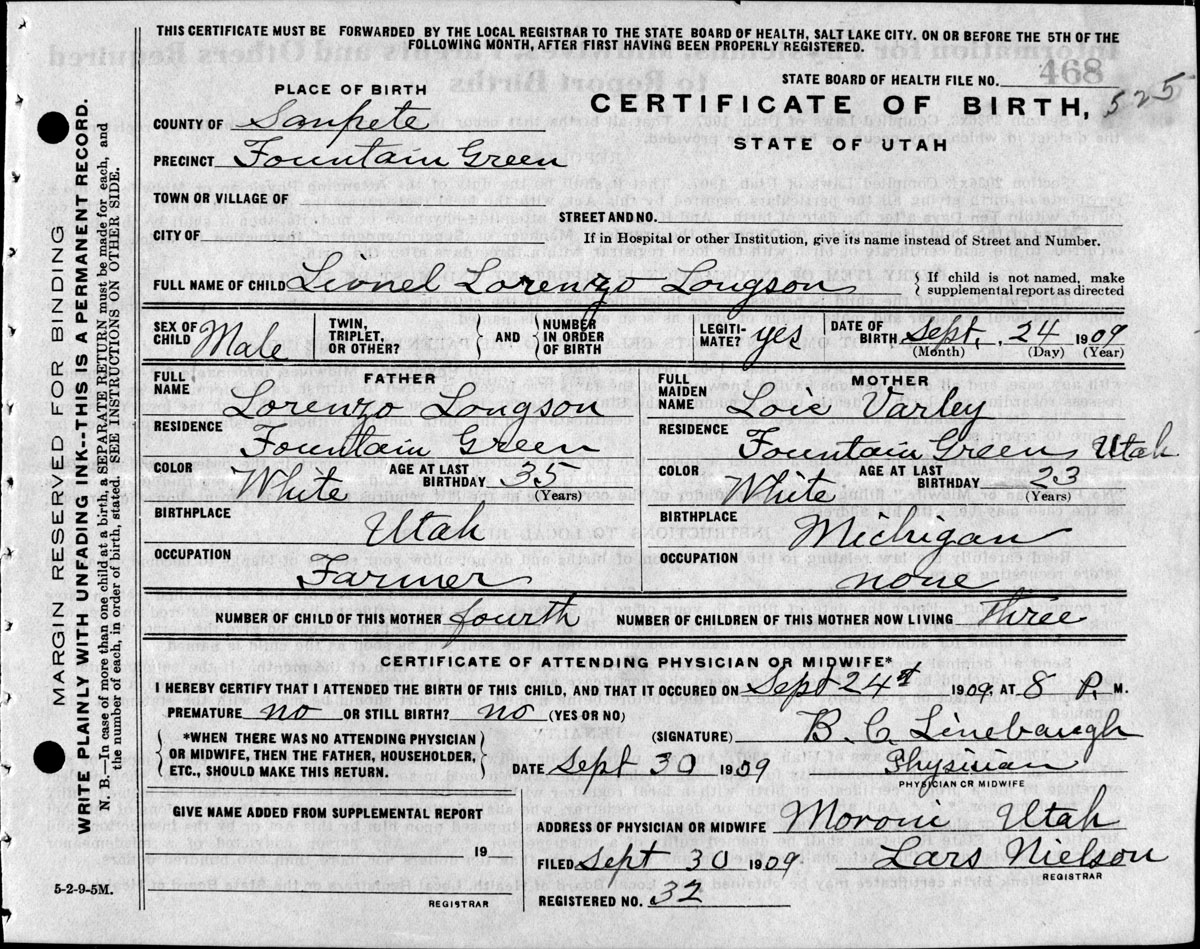 THIS CERTIFICATE MUST BE FORWARDED BY THE LOCAL REGISTRAR TO THE STATE BOARD OF HEALTH, SALT LAKE CITY. ON OR BEFORE THE 5TH OF THE
FOLLOWING MONTH, AFTER FIRST HAVING BEEN PROPERLY REGISTERED.
STATE BOARD OF HEALTH FILE NO. 468
PLACE OF BIRTH
CERTIFICATE OF BIRTH, 525
STATE OF UTAH
COUNTY OF Sanpete
PRECINCT Fountain Green
TOWN OR VILLAGE OF
STREET AND NO.
CITY OF
If in Hospital or other Institution, give its name instead of Street and Number.
FULL NAME OF CHILD Lionel Lorenzo Longson
{ If child is not named, make
supplemental report as directed
SEX OF CHILD Male
TWIN, TRIPLET, OR OTHER? } AND { NUMBER IN ORDER OF BIRTH
LEGITIMATE? yes
DATE OF BIRTH Sept. 24 1909
(Month) (Day) (Year)
FATHER
FULL NAME Lorenzo Longson
RESIDENCE Fountain Green
COLOR White AGE AT LAST BIRTHDAY 35
(Years)
BIRTHPLACE Utah
OCCUPATION Farmer
MOTHER
FULL MAIDEN NAME Varley
RESIDENCE Fountain Green Utah
COLOR White AGE AT LAST BIRTHDAY 23
(Years)
BIRTHPLACE Michigan
OCCUPATION none
NUMBER OF CHILD OF THIS MOTHER fourth NUMBER OF CHILDREN OF THIS MOTHER NOW LIVING three
CERTIFICATE OF ATTENDING PHYSICIAN OR MIDWIFE*
I HEREBY CERTIFY THAT I ATTENDED THE BIRTH OF THIS CHILD, AND THAT IT OCCURED ON Sept 24th 1909; AT 8 P. M.
PREMATURE no OR STILL BIRTH? no (YES OR NO)
{ *WHEN THERE WAS NO ATTENDING PHYSICIAN
OR MIDWIFE, THEN THE FATHER, HOUSEHOLDER,
ETC., SHOULD MAKE THIS RETURN. }
(SIGNATURE) B. C. Linebaugh
DATE Sept 30 1909 Physician
PHYSICIAN OR MIDWIFE
GIVE NAME ADDED FROM SUPPLEMENTAL REPORT
19
REGISTRAR
ADDRESS OF PHYSICIAN OR MIDWIFE Moroni Utah
FILED Sept 30 1909 Lars Nielson
REGISTRAR
REGISTERED NO. 32
5-2-9-5M.
MARGIN RESERVED FOR BINDING
WRITE PLAINLY WITH UNFADING INK--THIS IS A PERMANENT RECORD.
N. B.—In case of more than one child at a birth, a SEPARATE RETURN must be made for each, and
the number of each, in order of birth, stated. SEE INSTRUCTIONS ON OTHER SIDE.